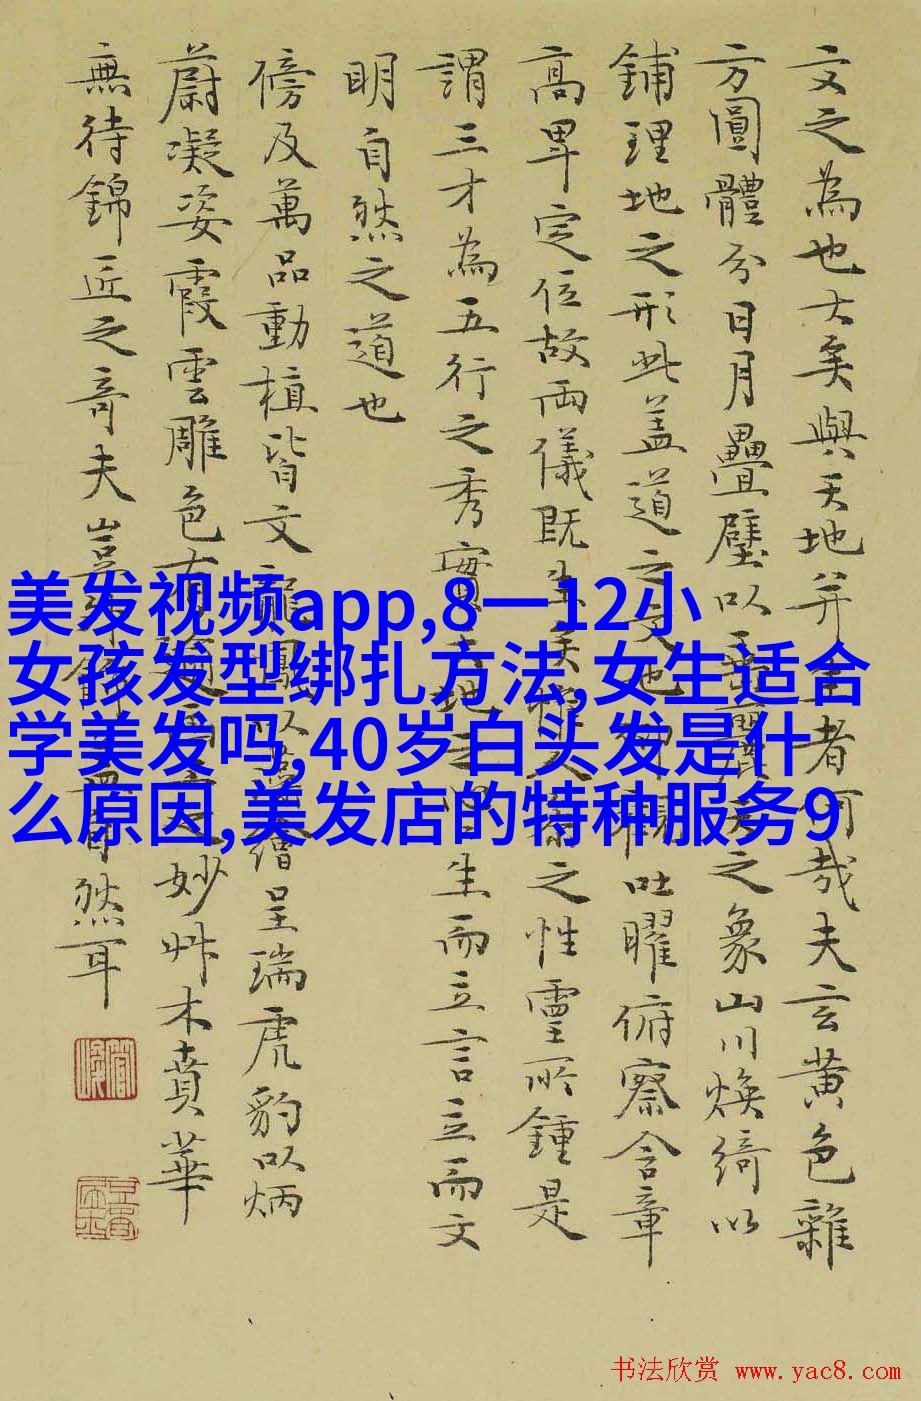 文之為也大矣與天地并生者何哉夫玄黄色雜
方圓體分日月疊璧以垂麗天之象山川煥綺以
鋪理地之形此盖道之文也仰觀吐曜俯察含章
高卑定位故兩儀既生矣惟人參之性靈所鍾是
謂三才為五行之秀實天地之心生而立言立而文
明自然之道也
傍及萬品動植皆文龍鳳以藻繪呈瑞虎豹以炳
蔚凝姿霞雲雕色有之妙艸木賁華
無待錦匠之奇夫豈外飾自然耳
美发视频app,8一12小
女孩发型绑扎方法,女生适合
学美发吗,40岁白头发是什
么原因,美发店的特种服务9
书法欣赏 www.yac8.com